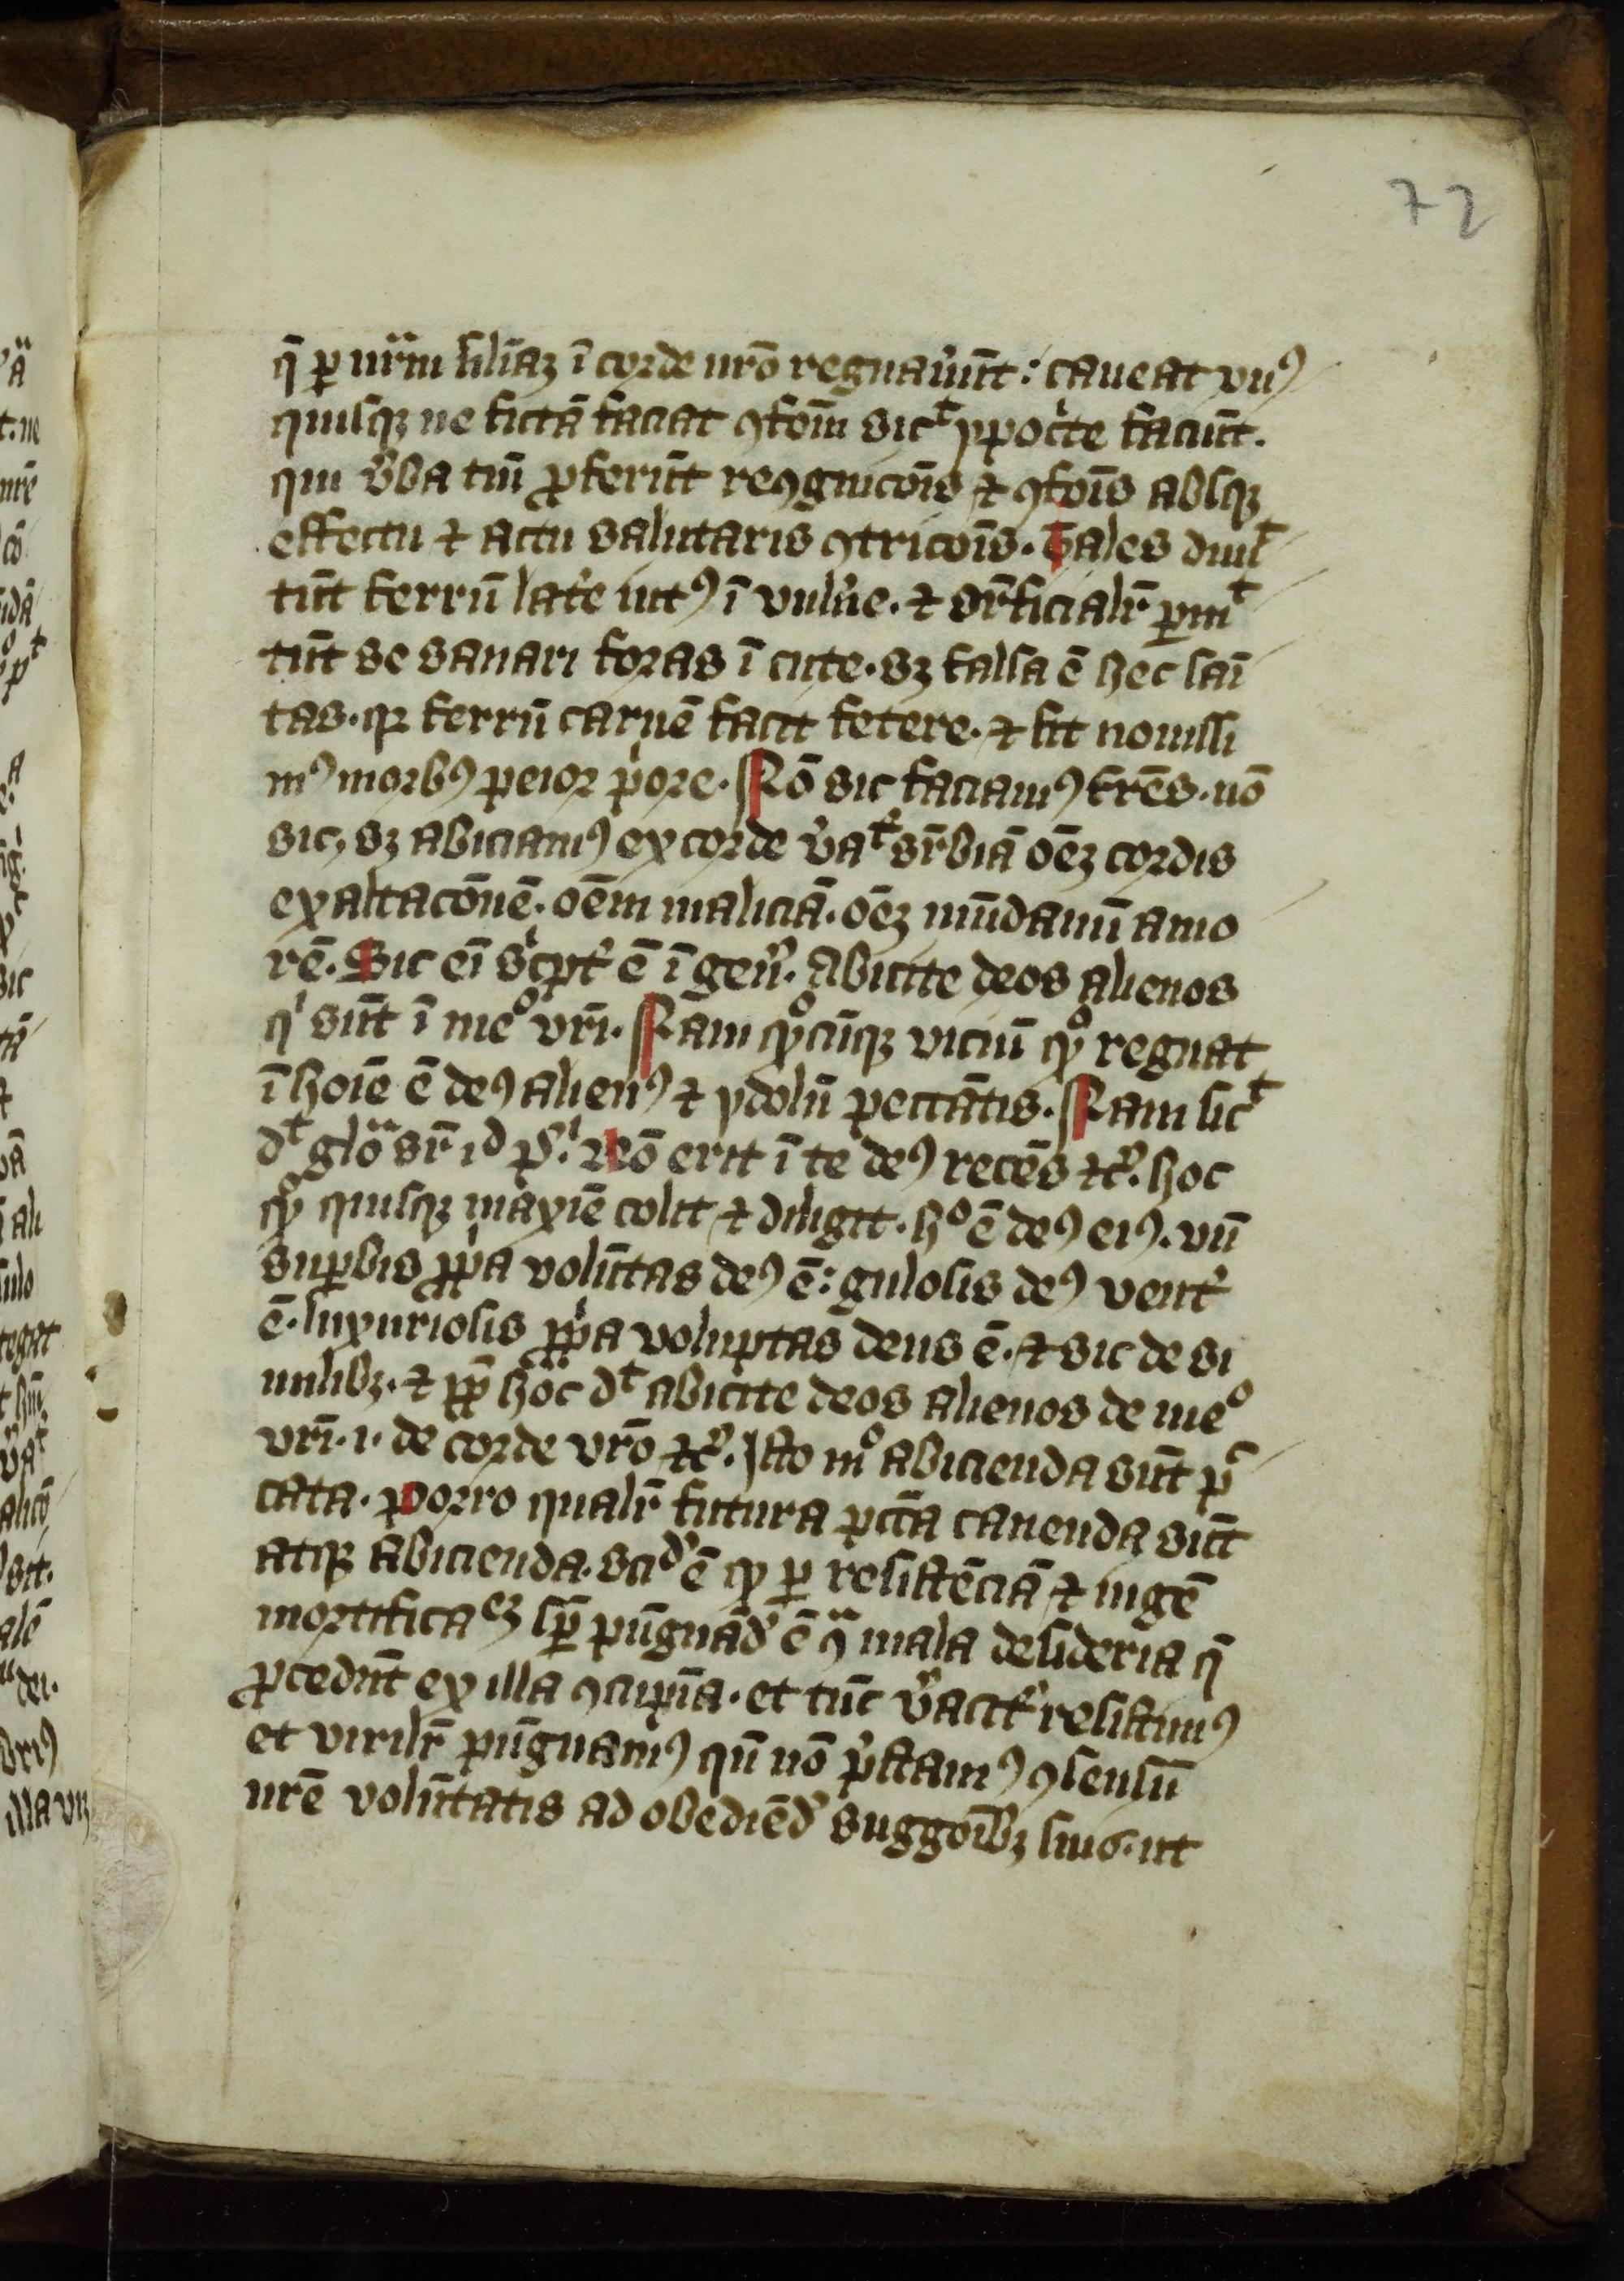 72
q̄ ꝑ nr̄am siliaꝫ ī corde nrō regnauūt: caueat vnꝰ
quisqꝫ ne fictā faciat ꝯfōm sicͭ ypocͥte faciūt.
qui v̓ba tm̄ ꝓferūt reꝯgnicōis ⁊ ꝯfōis absqꝫ
effectu ⁊ actu salutaris ꝯtricōis. Tales dimiͭ
tūt ferrū late̓ intꝰ ī vuln̓e. ⁊ sr̄ficialr̄ ꝑmiͭ
tūt se sanari foras ī cute. sꝫ falsa ē hec saī
tas. qꝛ ferrū carnē facit fetere. ⁊ fit nouissi
mꝰ morbꝰ peior pͥore. Nō sic faciamꝰ fr̄es. nō
sic, sꝫ abiciamꝰ ex corde v̓aͭ sr̄biā oēꝫ cordis
exaltacōnē. oēm maliciā. oēꝫ mūdanū amo
rē. Sic eī scͥpt̓ ē ī gen̓. Abicite deos alienos
qͥ sūt ī meͦ vrī. Nam qͦcūqꝫ viciū qͦ regnat
ī hoīe ē deꝰ alienꝰ ⁊ ydolū peccātis. Nam sicͭ
dͭ gloͣ sr̄ iᵈ pͥ. Nō erit ī te deꝰ recēs ⁊c̓. hoc
qͦ quisqꝫ maxīe colit ⁊ diligit. hͦ ē deꝰ eiꝰ. vn̄
suꝑbis ꝓpͥa volūtas deꝰ ē: gulosis deꝰ vent̓
ē. luxuriosis ꝓpͥa voluptas deus ē. ⁊ sic de si
milibꝫ. ⁊ ꝓp̄ hoc dͭ abicite deos alienos de meͦ
vrī. i. de corde vrō ⁊c̓. Isto mͦ abicienda sūt pͨ
cata. Porro qualr̄ futura pctā cauenda sūt
atqꝫ abicienda. sciᵈ̓ ē qꝫ ꝑ resistēciā ⁊ iugē
mortificaᶜꝫ sꝑ pūgnād̓ ē ꝯͣ mala desideria q̄
ꝓcedūt ex illa ꝯcupīa. et tūc v̓acit̓ resistimꝰ
et virilr̄ pūgnamꝰ qn̄ nō p̓stamꝰ ꝯsensū
nrē volūtatis ad obediēd̓ suggōibꝫ suis. ut